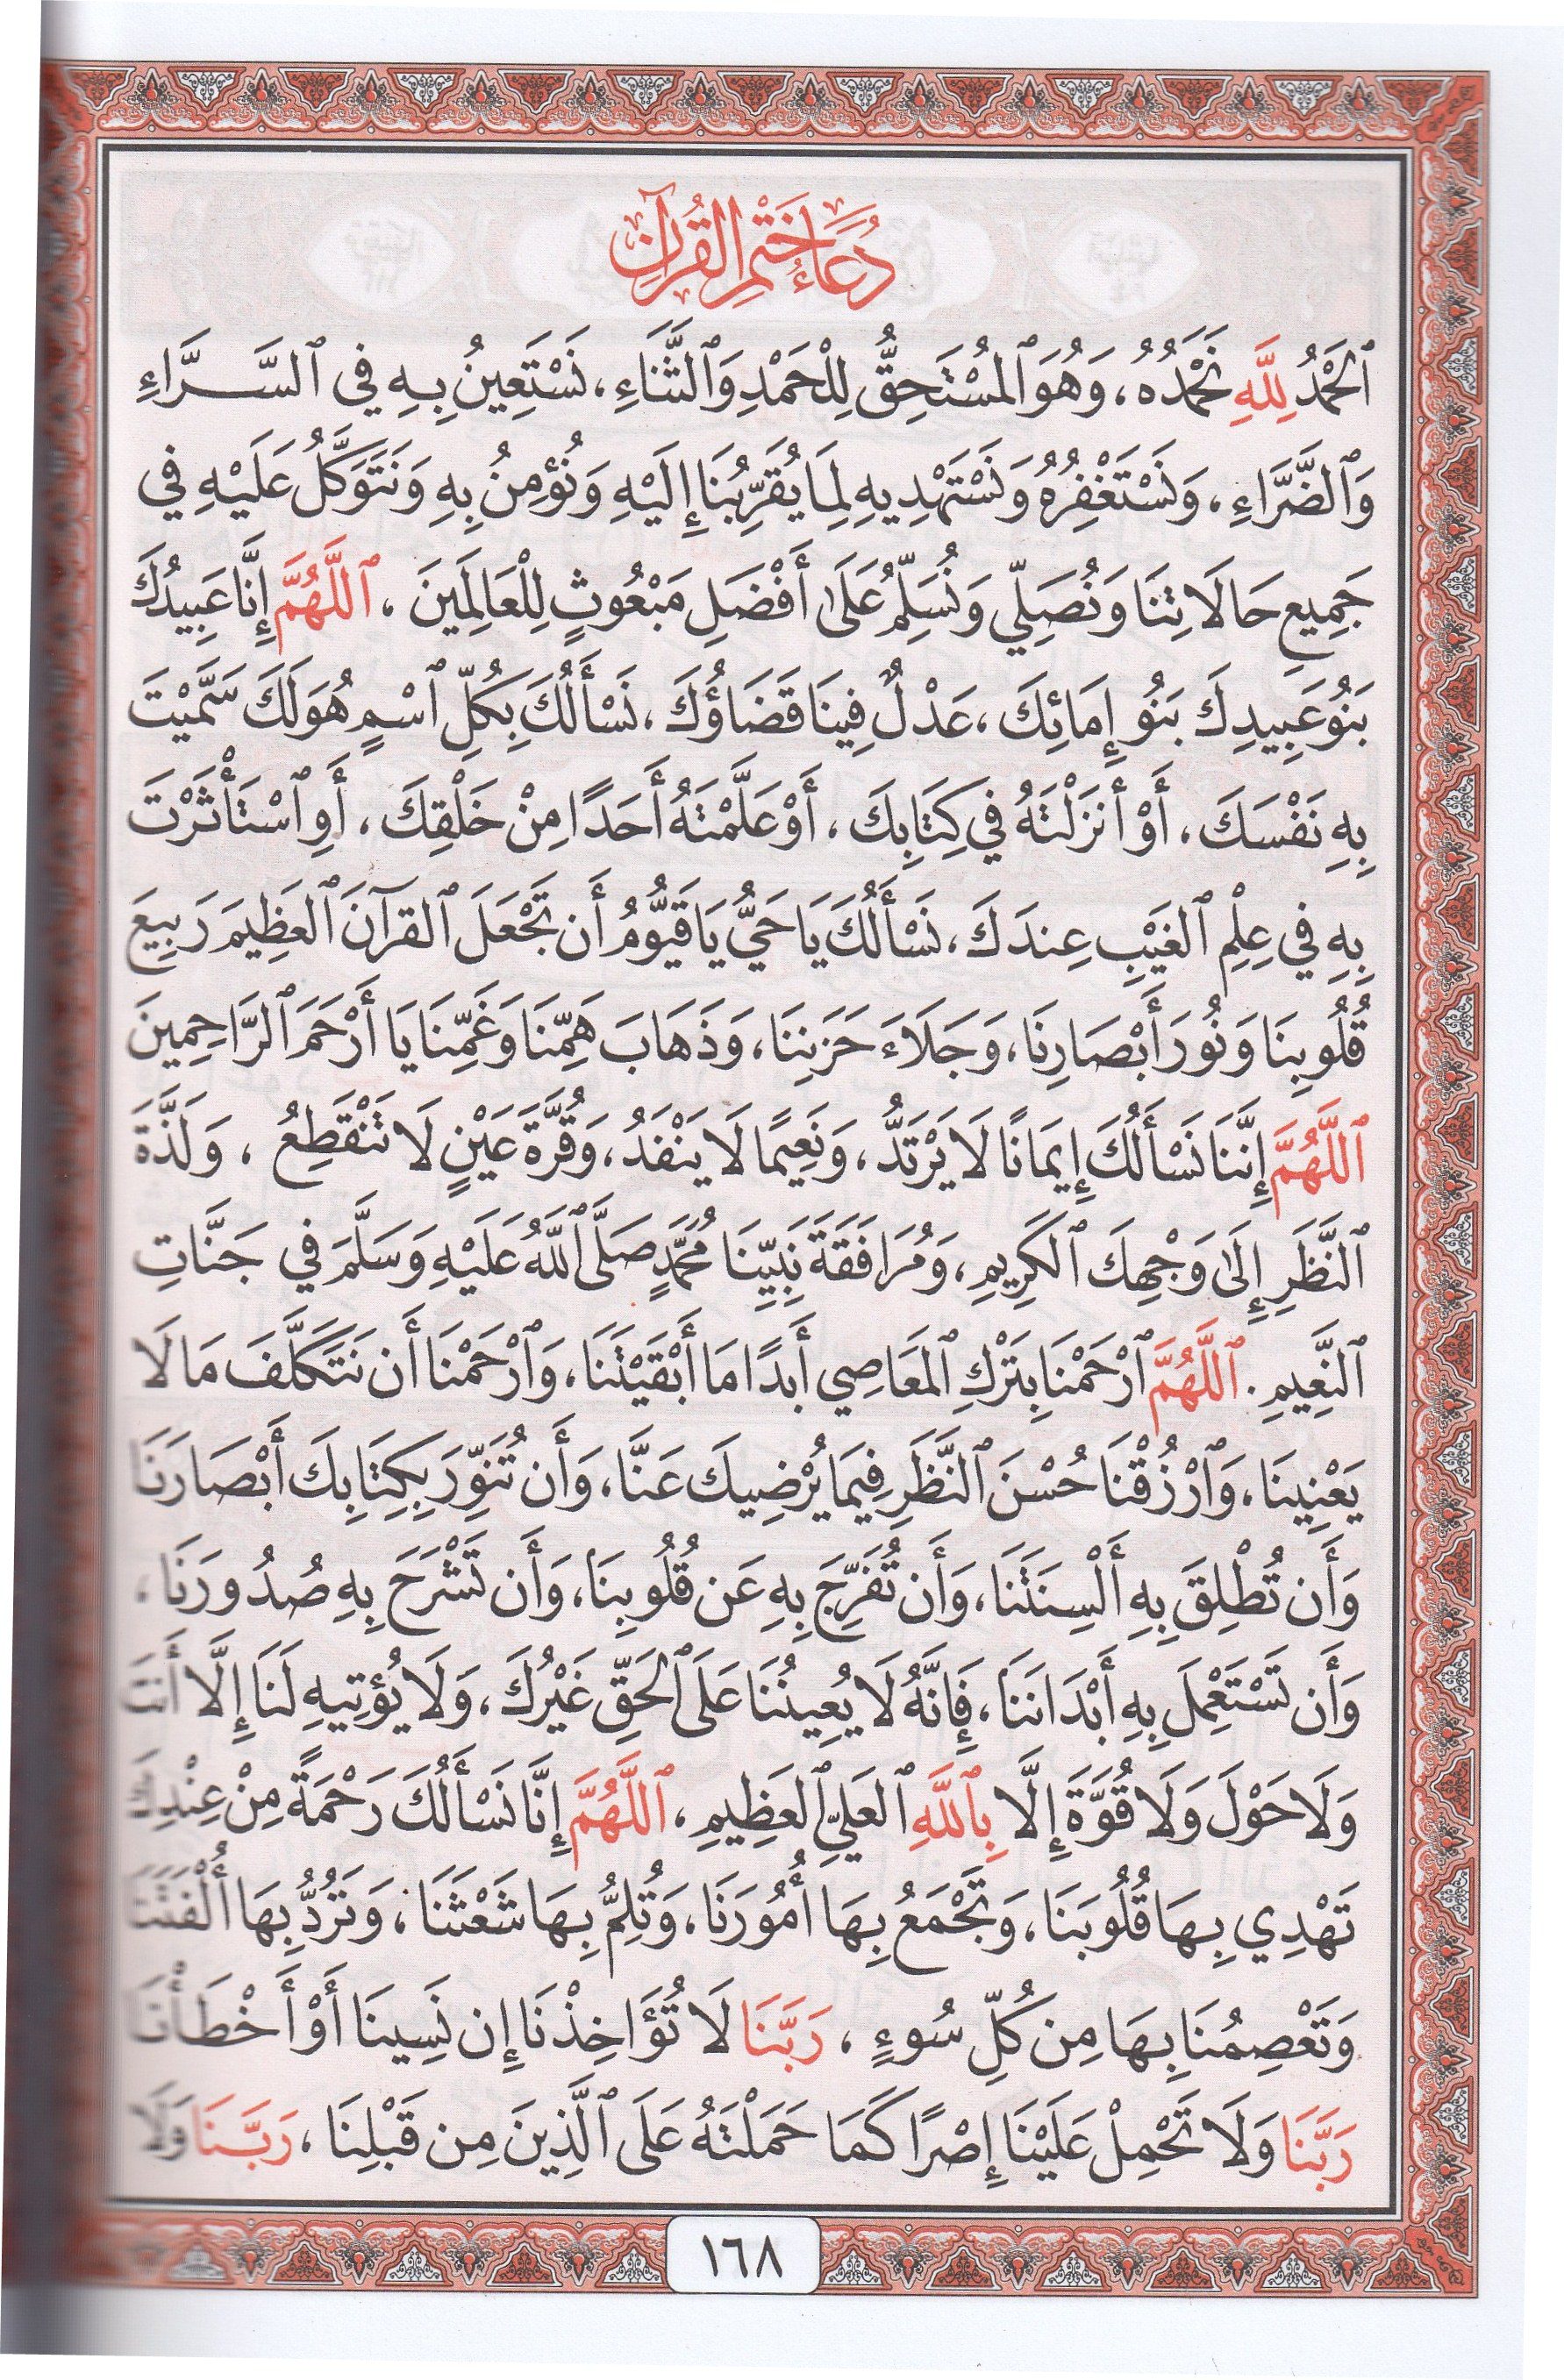 دُعَاءُ خَتْمِ القُرْآنِ
ٱلحَمْدُ لِلَّهِ نَحْمَدُهُ، وَهُوَ ٱلمُسْتَحِقُّ لِلْحَمْدِ وَٱلثَّنَاءِ، نَسْتَعِينُ بِهِ فِي ٱلسَّرَّاءِ
وَٱلضَّرَّاءِ، وَنَسْتَغْفِرُهُ وَنَسْتَهْدِيهِ لِمَا يُقَرِّبُنَا إِلَيْهِ وَنُؤْمِنُ بِهِ وَنَتَوَكَّلُ عَلَيْهِ فِي
جَمِيعِ حَالَاتِنَا وَنُصَلِّي وَنُسَلِّمُ عَلَىٰ أَفْضَلِ مَبْعُوثٍ لِلْعَالَمِينَ ، ٱللَّهُمَّ إِنَّا عَبِيدُكَ
بَنُو عَبِيدِكَ بَنُو إِمَائِكَ ، عَدْلٌ فِينَا قَضَاؤُكَ ، نَسْأَلُكَ بِكُلِّ ٱسْمٍ هُوَ لَكَ سَمَّيْتَ
بِهِ نَفْسَكَ ، أَوْ أَنزَلْتَهُ فِي كِتَابِكَ ، أَوْ عَلَّمْتَهُ أَحَدًا مِنْ خَلْقِكَ ، أَوِ ٱسْتَأْثَرْتَ
بِهِ فِي عِلْمِ ٱلغَيْبِ عِندَكَ ، نَسْأَلُكَ يَا حَيُّ يَا قَيُّومُ أَن تَجْعَلَ ٱلقرآنَ ٱلعَظِيمَ رَبِيعَ
قُلُوبِنَا وَنُورَ أَبْصَارِنَا ، وَجَلَاءَ حَزَنِنَا ، وَذَهَابَ هَمِّنَا وَغَمِّنَا يَا أَرْحَمَ ٱلرَّاحِمِينَ
ٱللَّهُمَّ إِنَّنَا نَسْأَلُكَ إِيمَانًا لَا يَرْتَدُّ ، وَنَعِيمًا لَا يَنْفَدُ ، وَقُرَّةَ عَيْنٍ لَا تَنْقَطِعُ ، وَلَذَّةَ
ٱلنَّظَرِ إِلَىٰ وَجْهِكَ ٱلكَرِيمِ ، وَمُرَافَقَةَ نَبِيِّنَا مُحَمَّدٍ صَلَّى ٱللَّهُ عَلَيْهِ وَسَلَّمَ فِي جَنَّاتِ
ٱلنَّعِيمِ . ٱللَّهُمَّ ٱرْحَمْنَا بِتَرْكِ ٱلمَعَاصِي أَبَدًا مَا أَبْقَيْتَنَا ، وَٱرْحَمْنَا أَن نَتَكَلَّفَ مَا لَا
يَعْنِينَا ، وَٱرْزُقْنَا حُسْنَ ٱلنَّظَرِ فِيمَا يُرْضِيكَ عَنَّا ، وَأَن تُنَوِّرَ بِكِتَابِكَ أَبْصَارَنَا
وَأَن تُطْلِقَ بِهِ أَلْسِنَتَنَا ، وَأَن تُفَرِّجَ بِهِ عَن قُلُوبِنَا ، وَأَن تَشْرَحَ بِهِ صُدُورَنَا ،
وَأَن تَسْتَعْمِلَ بِهِ أَبْدَانَنَا ، فَإِنَّهُ لَا يُعِينُنَا عَلَى ٱلحَقِّ غَيْرُكَ ، وَلَا يُؤْتِيهِ لَنَا إِلَّا أَنتَ
وَلَا حَوْلَ وَلَا قُوَّةَ إِلَّا بِٱللَّهِ ٱلعَلِيِّ ٱلعَظِيمِ ، ٱللَّهُمَّ إِنَّا نَسْأَلُكَ رَحْمَةً مِنْ عِنْدِكَ
تَهْدِي بِهَا قُلُوبَنَا ، وَتَجْمَعُ بِهَا أُمُورَنَا ، وَتُلِمُّ بِهَا شَعْثَنَا ، وَتَرُدُّ بِهَا أُلْفَتَنَا
وَتَعْصِمُنَا بِهَا مِن كُلِّ سُوءٍ ، رَبَّنَا لَا تُؤَاخِذْنَا إِن نَسِينَا أَوْ أَخْطَأْنَا
رَبَّنَا وَلَا تَحْمِلْ عَلَيْنَا إِصْرًا كَمَا حَمَلْتَهُ عَلَى ٱلَّذِينَ مِن قَبْلِنَا ، رَبَّنَا وَلَا
١٦٨